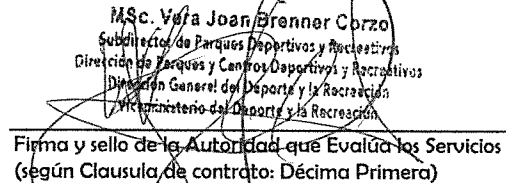 MSc. Vera Joan Brenner Corzo
Subdirector de Parques Deportivos y Recreativos
Dirección de Parques y Centros Deportivos y Recreativos
Dirección General del Deporte y la Recreación
Viceministerio del Deporte y la Recreación
Firma y sello de la Autoridad que Evalúa los Servicios
(según Clausula de contrato: Décima Primera)